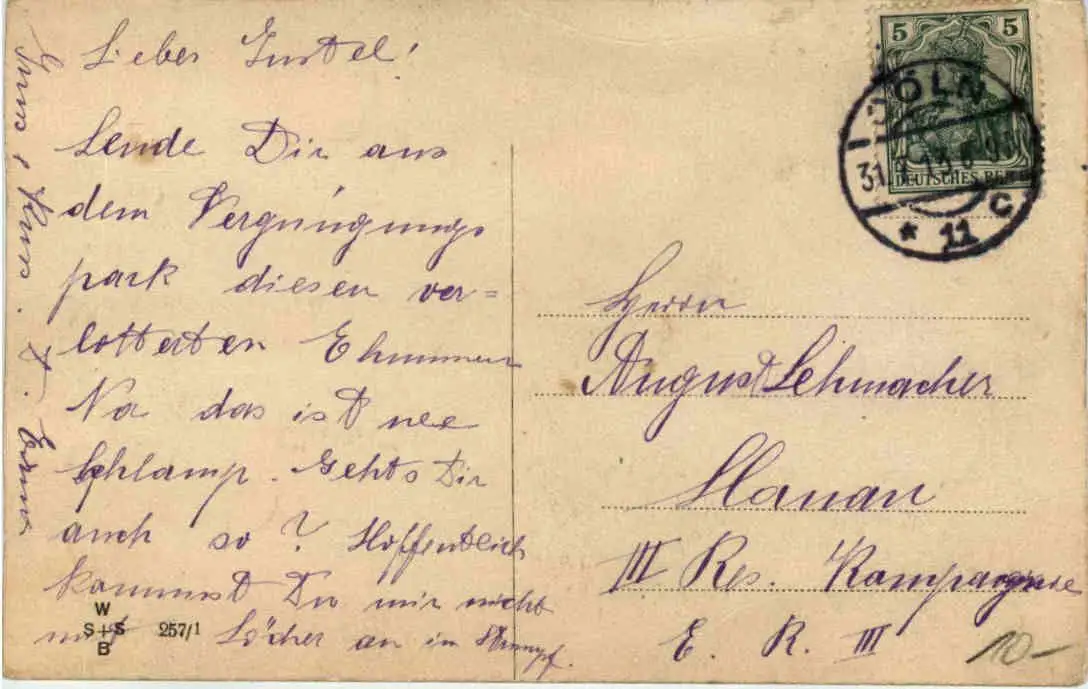 Lieber Gustel!
Sende Dir aus
dem Vergnügungs
park diesen ver=
lotterten
Na das ist nee
Schlamp. Gehts Dir
auch so? Hoffentlich
kommst Du mir nicht
mit Löcher an im Strumpf.
Gruss & Kuss.
5 5
DEUTSCHES REICH
CÖLN
31. 13. 8-9
* 11 C
Herrn
August Schmacher
Hanau
III Res. Kompagnie
E. R. III
10-
W
S+S
B
257/1